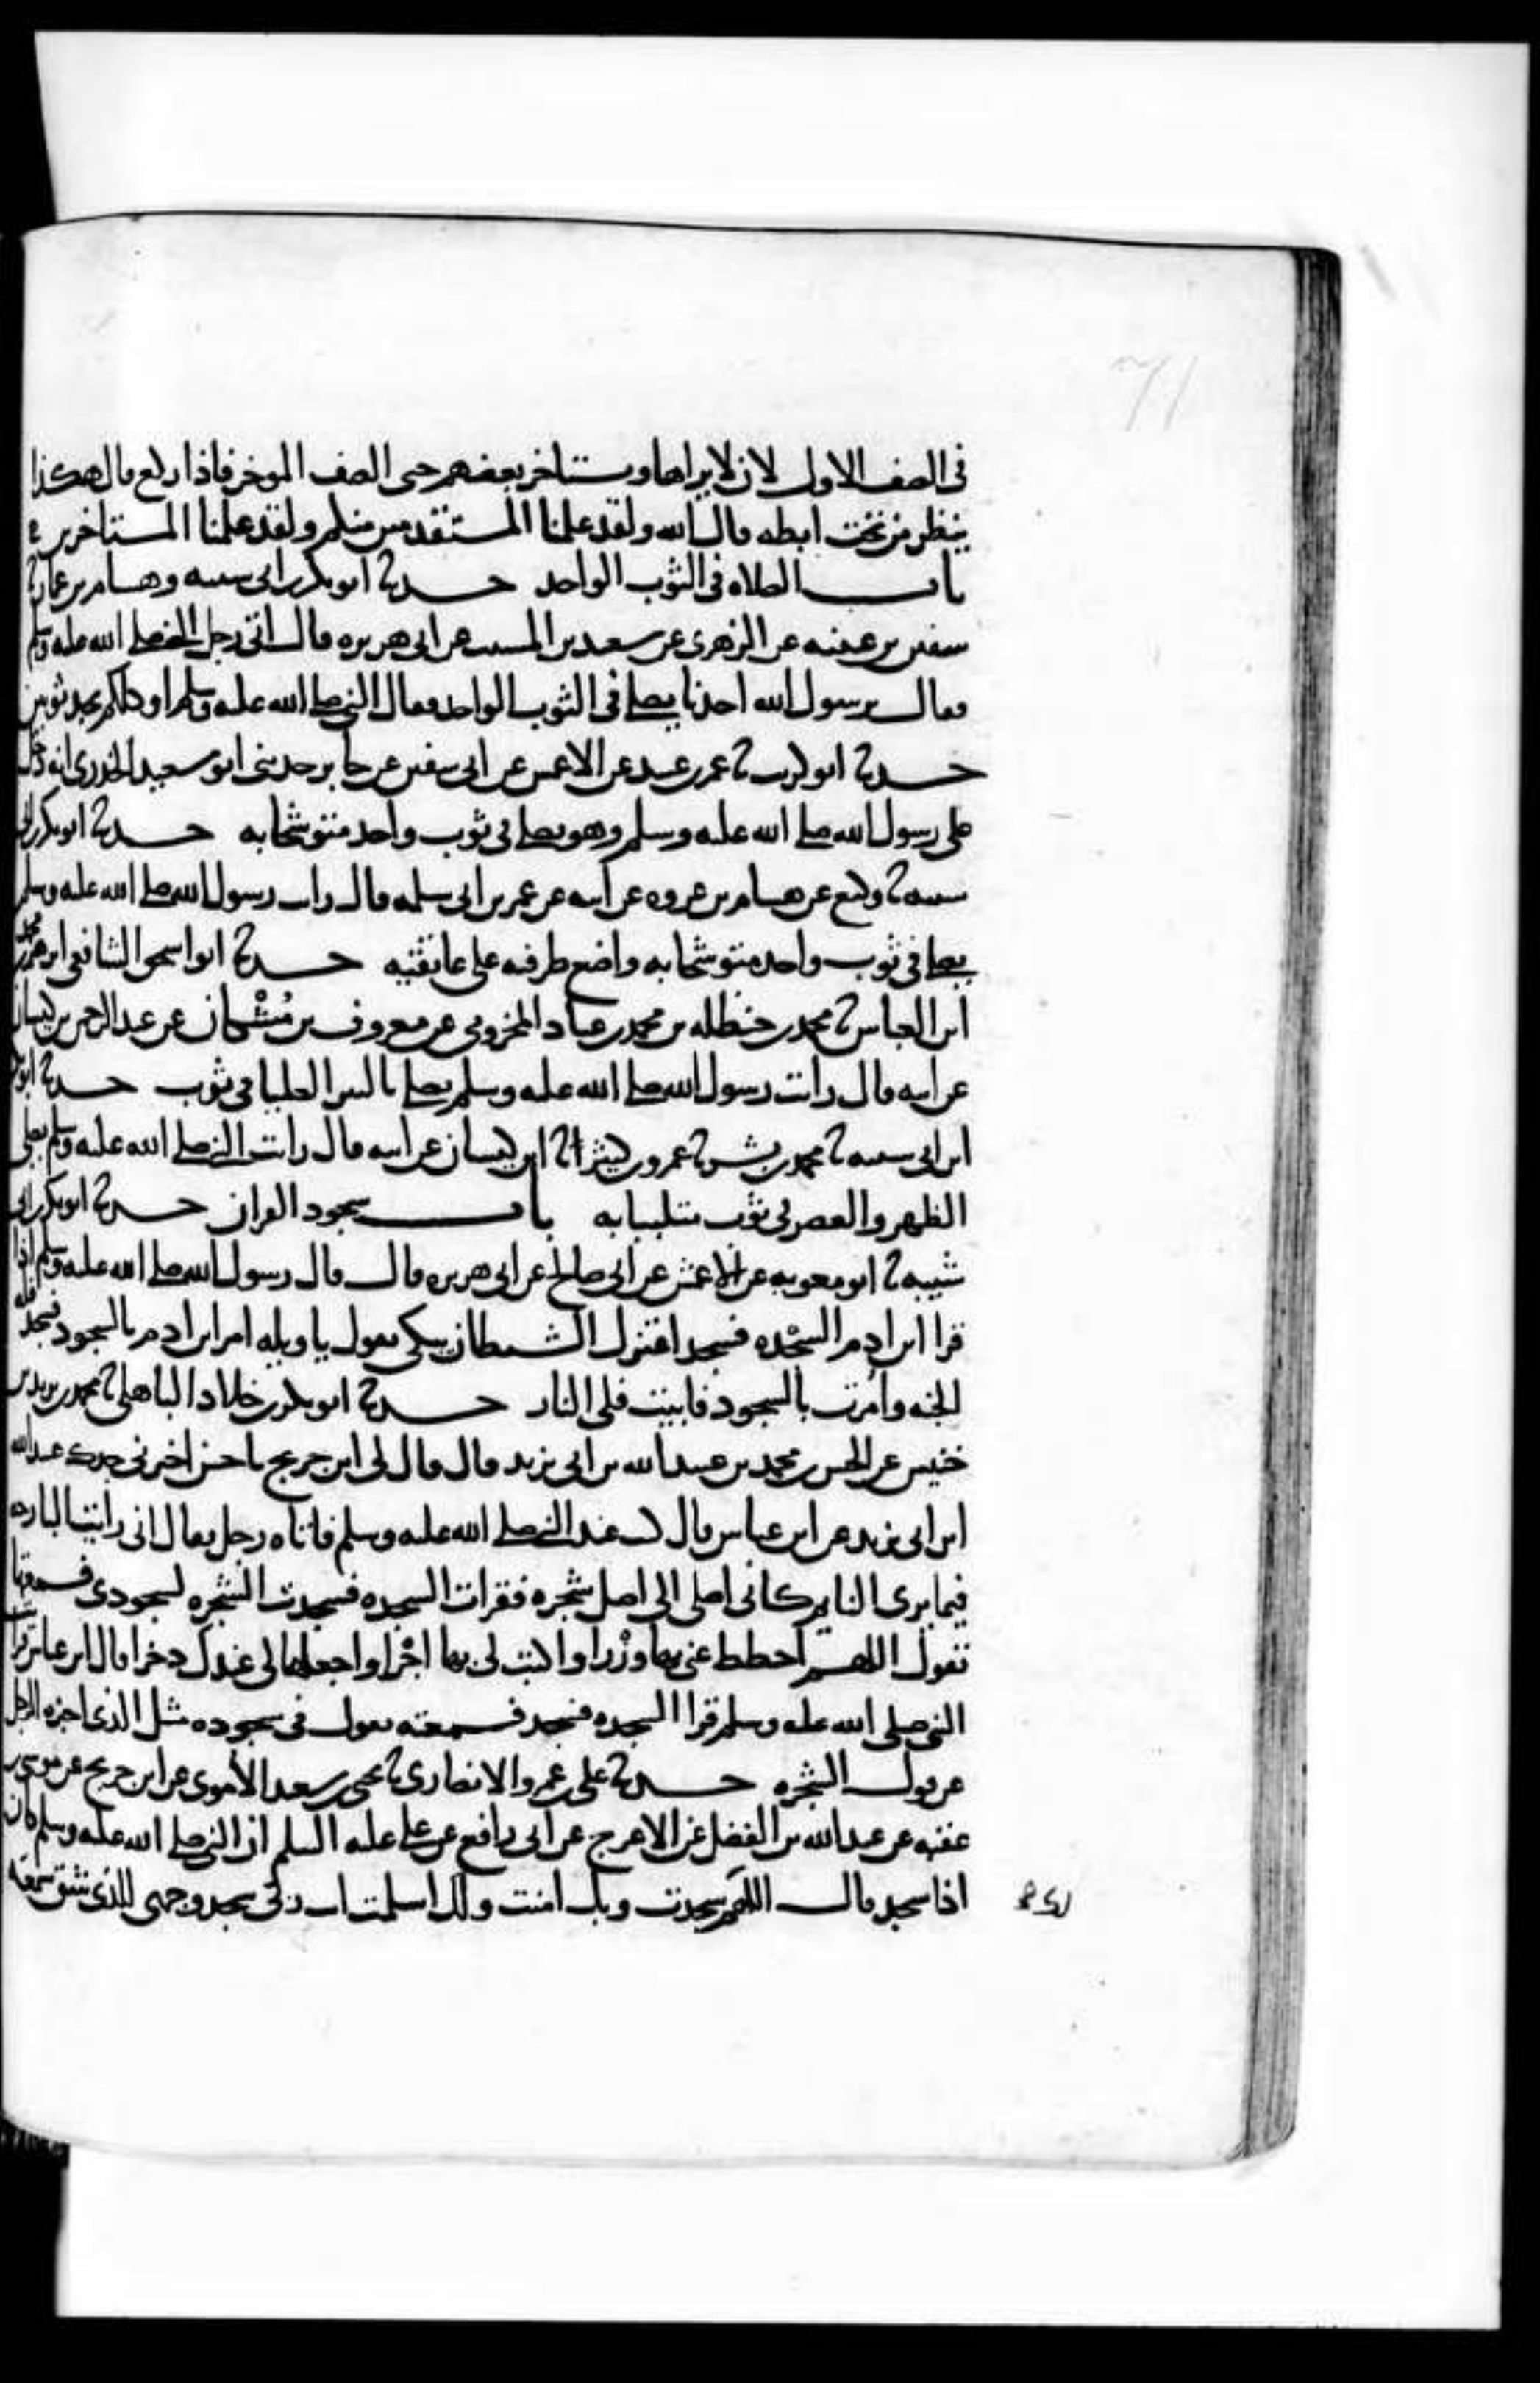 71
فى الصف الاول لان لا يراها ويستاخر بعضهم حتى الصف الموخر فاذا ركع قال هكذا
ينظر من تحت ابطه قال الله ولقد علمنا المستقدمين منكم ولقد علمنا المستاخرين
باب الصلاه فى الثوب الواحد حدثنا ابو بكر بن ابى شيبه وهشام بن عمار ثنا
سفين بن عيينه عن الزهرى عن سعيد بن المسيب عن ابى هريره قال اتى رجل النبي صلى الله عليه وسلم
فقال يرسول الله احدنا يصلى فى الثوب الواحد فقال النبي صلى الله عليه وسلم او كلكم يجد ثوبين
حدثنا ابو كريب ثنا عمر بن عبيد عن الاعمش عن ابى سفين عن جابر حدثنى ابو سعيد الخدرى انه دخل
على رسول الله صلى الله عليه وسلم وهو يصلى فى ثوب واحد متوشحا به حدثنا ابو بكر بن ابى
شيبه ثنا وكيع عن هشام بن عروه عن ابيه عن عمر بن ابى سلمه قال رايت رسول الله صلى الله عليه وسلم
يصلى فى ثوب واحد متوشحا به واضع طرفيه على عاتقيه حدثنا ابو اسحق الشافعى ابرهيم بن محمد
ابن العباس ثنا محمد بن حنظله بن محمد بن عباد المخزومى عن معروف بن مُشْكان عن عبد الرحمن بن كيسان
عن ابيه قال رايت رسول الله صلى الله عليه وسلم يصلى بالبير العليا فى ثوب حدثنا ابو بكر
ابن ابى شيبه ثنا محمد بن بشر ثنا عمرو بن كثير ثنا ابن كيسان عن ابيه قال رايت النبي صلى الله عليه وسلم يصلى
الظهر والعصر فى ثوب متلببا به باب سجود القران حدثنا ابو بكر بن ابى
شيبه ثنا ابو معويه عن الاعمش عن ابى صالح عن ابى هريره قال قال رسول الله صلى الله عليه وسلم اذا
قرا ابن ادم السجده فسجد اعتزل الشيطان يبكى يقول يا ويله امر ابن ادم بالسجود فسجد فله
الجنه وامرت بالسجود فابيت فلى النار حدثنا ابو بكر بن خلاد الباهلى ثنا محمد بن يزيد بن
خنيس عن الحسن بن محمد بن عبيد الله بن ابى يزيد قال قال لى ابن جريج يا حسن اخبرنى جدك عبيد الله
ابن ابى يزيد عن ابن عباس قال كنت عند النبي صلى الله عليه وسلم فاتاه رجل فقال انى رايت البارحه
فيما يرى النايم كانى اصلى الى اصل شجره فقرات السجده فسجدت الشجره لسجودى فسمعتها
تقول اللهم احطط عنى بها وزرا واكتب لى بها اجرا واجعلها لى عندك دخرا قال ابن عباس فرايت
النبي صلى الله عليه وسلم قرا السجده فسجد فسمعته يقول فى سجوده مثل الذى اخبره الرجل
عن قول الشجره حدثنا على بن عمرو الانصارى ثنا يحيى بن سعيد الأموى عن ابن جريج عن موسى بن
عقبه عن عبد الله بن الفضل عن الاعرج عن ابى رافع عن على عليه السلم ان النبي صلى الله عليه وسلم كان
اذا سجد قال اللهم سجدت وبك امنت ولك اسلمت انت ربى سجد وجهى للذى شق سمعه